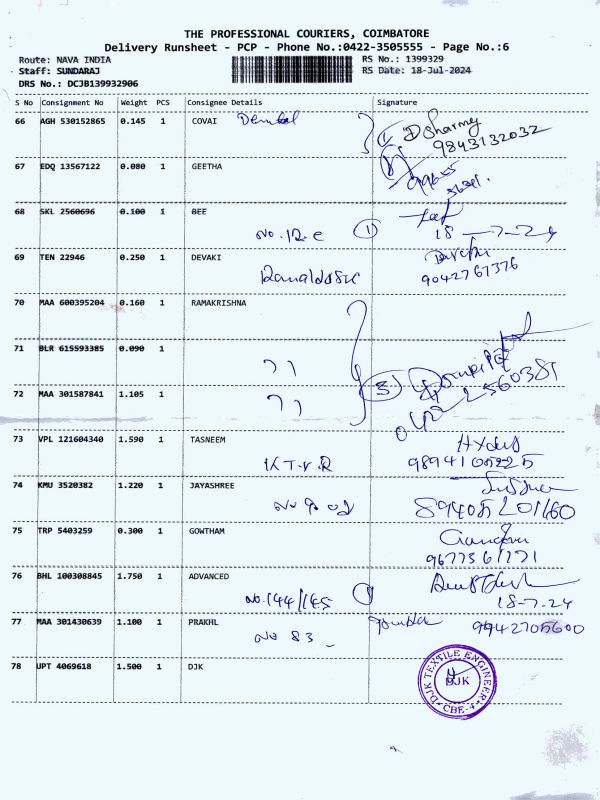 THE PROFESSIONAL COURIERS, COIMBATORE
Delivery Runsheet - PCP - Phone No.:0422-3505555 - Page No.:6
Route: NAVA INDIA RS No.: 1399329
Staff: SUNDARAJ RS Date: 18-Jul-2024
DRS No.: DCJB139932906
S No Consignment No Weight PCS Consignee Details Signature
66 AGH 530152865 0.145 1 COVAI Dental 1 D Sharmy
9843132032
67 EDQ 13567122 0.080 1 GEETHA
68 SKL 2560696 0.100 1 BEE
No. 12. e 1 18-7-24
69 TEN 22946 0.250 1 DEVAKI
9042767376
70 MAA 600395204 0.160 1 RAMAKRISHNA
71 BLR 615593385 0.090 1
" 3
72 MAA 301587841 1.105 1
" 0422560381
73 VPL 121604340 1.590 1 TASNEEM
K.T.V.R 9894105225
74 KMU 3520382 1.220 1 JAYASHREE
89405201160
75 TRP 5403259 0.300 1 GOWTHAM
9677361771
76 BHL 100308845 1.750 1 ADVANCED
No. 144/145 1 18-7-24
77 MAA 301430639 1.100 1 PRAKHL 9942705600
No 83
78 UPT 4069618 1.500 1 DJK
DJK TEXTILE ENGINEER
DJK
CBE-4